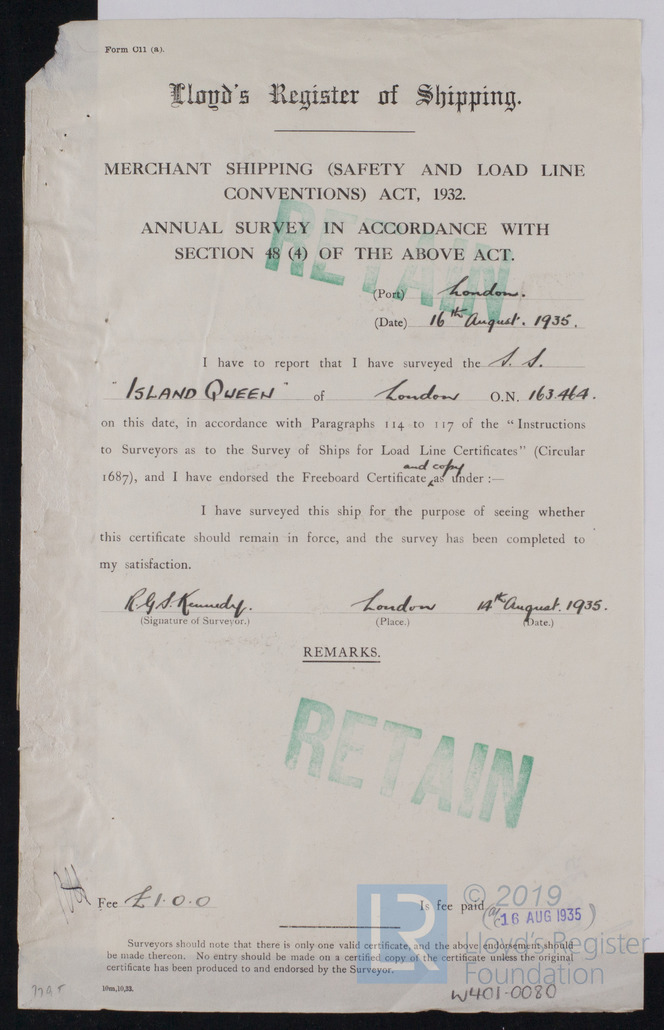 Form C11 (a).
Lloyd's Register of Shipping.
MERCHANT SHIPPING (SAFETY AND LOAD LINE
CONVENTIONS) ACT, 1932.
ANNUAL SURVEY IN ACCORDANCE WITH
SECTION 48 (4) OF THE ABOVE ACT.
RETAIN
(Port) London.
(Date) 16th August. 1935.
I have to report that I have surveyed the S. S.
"ISLAND QUEEN" of London O.N. 163.464.
on this date, in accordance with Paragraphs 114 to 117 of the "Instructions
to Surveyors as to the Survey of Ships for Load Line Certificates" (Circular
and copy
1687), and I have endorsed the Freeboard Certificate as under :—
I have surveyed this ship for the purpose of seeing whether
this certificate should remain in force, and the survey has been completed to
my satisfaction.
R.G.S. Kennedy. London 14th August. 1935.
(Signature of Surveyor.) (Place.) (Date.)
REMARKS.
RETAIN
Fee £1.0.0 Is fee paid
16 AUG 1935
© 2019
LR
Lloyd's Register
Foundation
Surveyors should note that there is only one valid certificate, and the above endorsement should
be made thereon. No entry should be made on a certified copy of the certificate unless the original
certificate has been produced to and endorsed by the Surveyor.
10m,10,33.
W401-0080